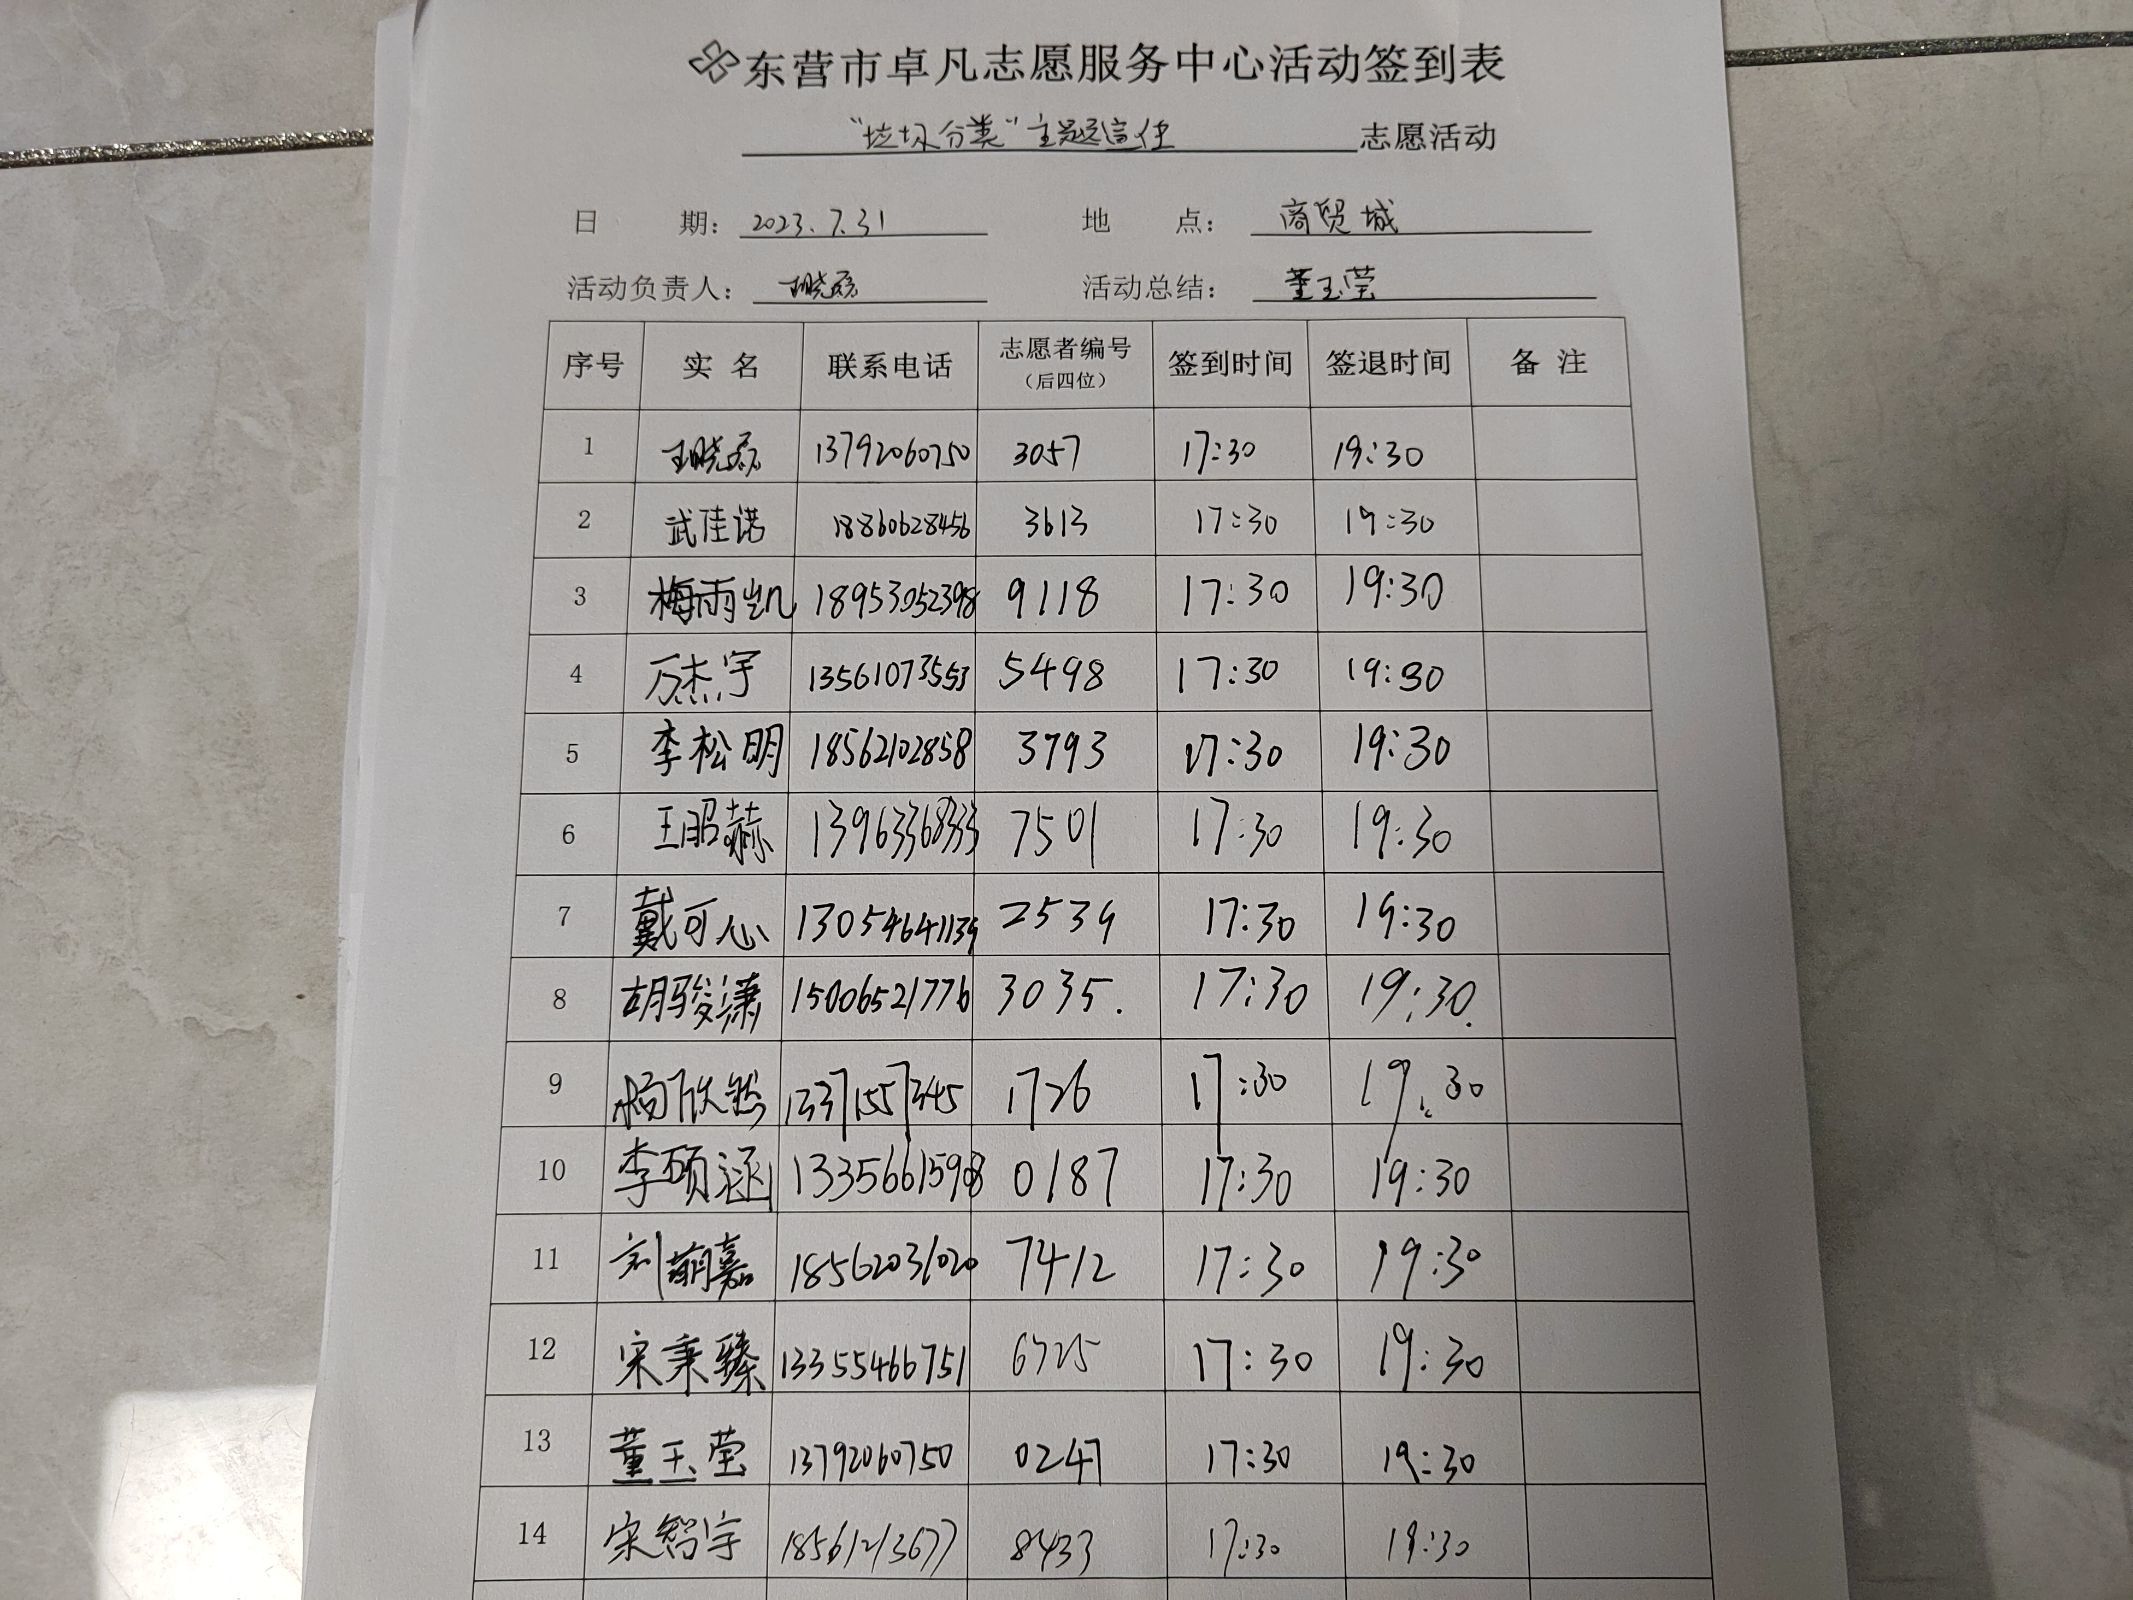 东营市卓凡志愿服务中心活动签到表
“垃圾分类”主题宣传 志愿活动
日 期： 2023.7.31 地 点： 商贸城
活动负责人： 王晓磊 活动总结： 董玉莹
序号 实名 联系电话 志愿者编号（后四位） 签到时间 签退时间 备注
1 王晓磊 13792060750 3057 17:30 19:30
2 武佳诺 18860628456 3613 17:30 19:30
3 梅雨凯 18953052398 9118 17:30 19:30
4 万杰宇 13561073553 5498 17:30 19:30
5 李松明 18562102858 3793 17:30 19:30
6 王昭赫 13963368333 7501 17:30 19:30
7 戴可心 13054641139 2539 17:30 19:30
8 胡骏潇 15006521776 3035. 17:30 19:30.
9 杨欣然 13371557345 1726 17:30 19:30
10 李硕涵 13356615908 0187 17:30 19:30
11 刘萌嘉 18562031020 7412 17:30 19:30
12 宋秉臻 13355466751 6725 17:30 19:30
13 董玉莹 13792060750 0247 17:30 19:30
14 宋智宇 18561213677 8433 17:30 19:30